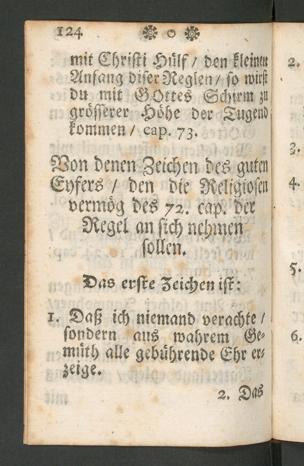 124
mit Christi Hülf / den kleinen
Anfang diser Reglen / so wirst
du mit GOttes Schirm zu
grösserer Höhe der Tugend
kommen / cap. 73.
Von denen Zeichen des guten
Eyfers / den die Religiosen
vermög des 72. cap. der
Regel an sich nehmen
sollen.
Das erste Zeichen ist:
1. Daß ich niemand verachte /
sondern aus wahrem Ge-
müth alle gebührende Ehr er-
zeige.
2. Das
2.
3.
4.
5.
6.